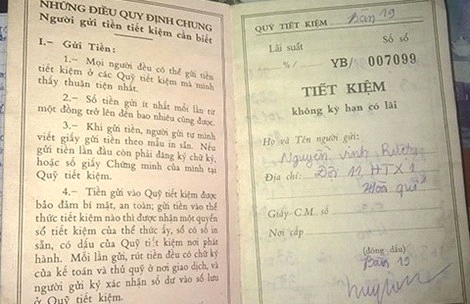 NHỮNG ĐIỀU QUY ĐỊNH CHUNG
Người gửi tiền tiết kiệm cần biết
I.— Gửi Tiền:
1.— Mọi người đều có thể gửi tiền
tiết kiệm ở các Quỹ tiết kiệm mà mình
thấy thuận tiện nhất.
2.— Số tiền gửi ít nhất mỗi lần từ
một đồng trở lên đến bao nhiêu cũng được.
3.— Khi gửi tiền, người gửi tự mình
viết giấy gửi tiền theo mẫu in sẵn. Nếu
gửi tiền lần đầu còn phải đăng ký chữ ký,
hoặc số giấy Chứng minh của mình tại
Quỹ tiết kiệm.
4.— Tiền gửi vào Quỹ tiết kiệm được
bảo đảm bí mật, an toàn; gửi tiền vào thể
thức tiết kiệm nào thì được nhận một quyển
sổ tiết kiệm của thể thức ấy, sổ có số in
sẵn, có dấu của Quỹ tiết kiệm nơi phát
hành. Mỗi lần gửi, rút tiền đều có chữ ký
của kế toán và thủ quỹ ở nơi giao dịch, và
người gửi ký xác nhận số dư vào sổ lưu
ở Quỹ tiết kiệm.
QUỸ TIẾT KIỆM Bần 19
Lãi suất Sổ số
%/ YB/ 007099
TIẾT KIỆM
không kỳ hạn có lãi
Họ và Tên người gửi:
Nguyễn vinh
Địa chỉ: Đội 12 HTX 1
Hòa quí
Giấy C.M số
Nơi cấp
(đóng dấu)
Bần 19